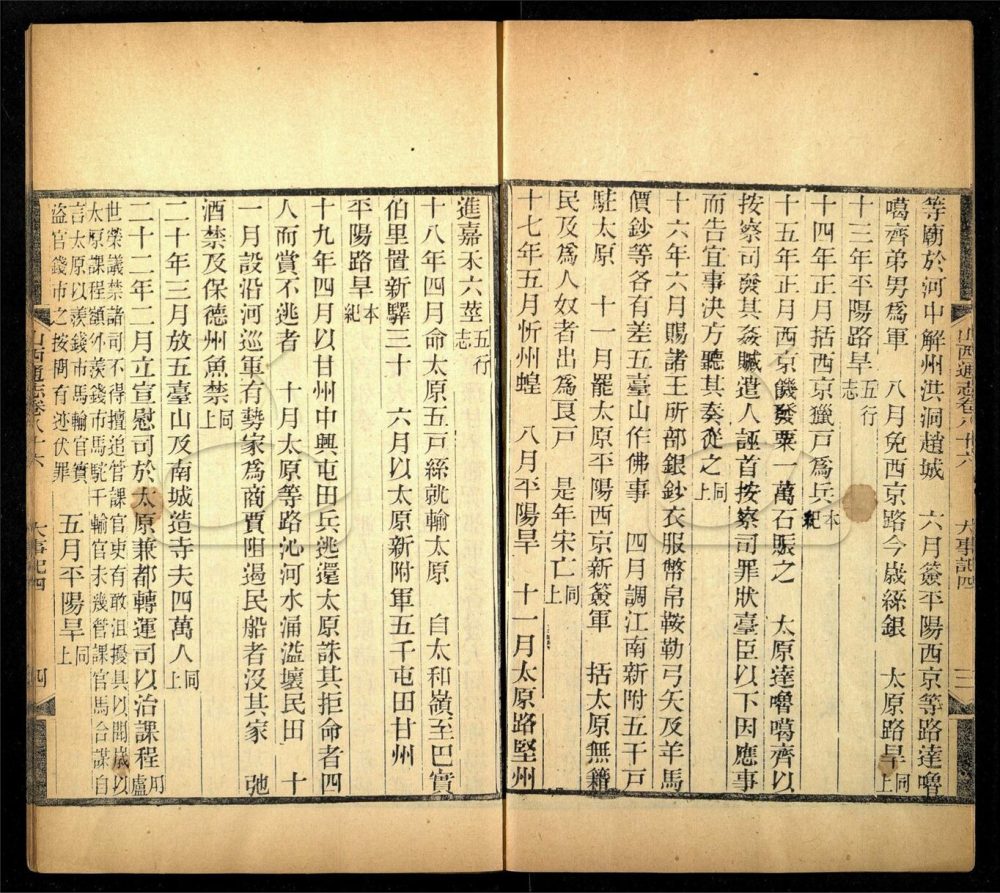 等廟於河中解州洪洞趙城　六月簽平陽西京等路達嚕
噶齊弟男爲軍　八月免西京路今歲絲銀　太原路旱同上
十三年平陽路旱五行志
十四年正月括西京獵戸爲兵本紀
十五年正月西京饑發粟一萬石賑之　太原達嚕噶齊以
按察司發其姦贓遣人誣首按察司罪狀臺臣以下因應事
而告宜事決方聽其奏從之同上
十六年六月賜諸王所部銀鈔衣服幣帛鞍勒弓矢及羊馬
價鈔等各有差五臺山作佛事　四月調江南新附五千戸
駐太原　十一月罷太原平陽西京新簽軍　括太原無籍
民及爲人奴者出爲良戸　是年宋亡同上
十七年五月忻州蝗　八月平陽旱　十一月太原路堅州
山西通志卷八十六　大事記四　三
進嘉禾六莖五行志
十八年四月命太原五戸絲就輸太原　自太和嶺至巴實
伯里置新驛三十　六月以太原新附軍五千屯田甘州
平陽路旱本紀
十九年四月以甘州中興屯田兵逃還太原誅其拒命者四
人而賞不逃者　十月太原等路沁河水涌溢壞民田　十
一月設沿河巡軍有勢家爲商賈阻遏民船者沒其家　弛
酒禁及保德州魚禁同上
二十年三月放五臺山及南城造寺夫四萬人同上
二十二年二月立宣慰司於太原兼都轉運司以治課程用盧
世榮議禁諸司不得擅追管課官吏有敢沮擾具以聞歲以
太原課程額外羨錢市馬駝千輸官未幾管課官馬合謀自
言太原以羨錢市馬輸官實
盜官錢市之按問有迹伏罪　五月平陽旱同上
山西通志卷八十六　大事記四　四